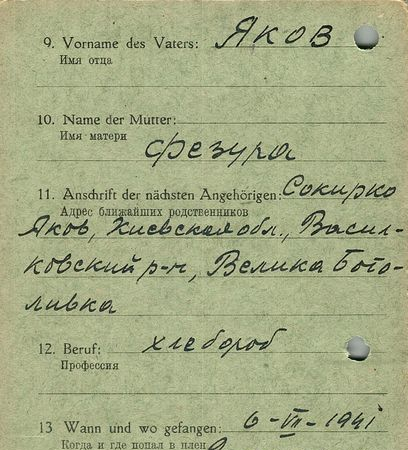 9. Vorname des Vaters: Яков
Имя отца
10. Name der Mutter:
Имя матери
Фезура
11. Anschrift der nächsten Angehörigen: Сокирко
Адрес ближайших родственников
Яков, Киевская обл., Васил-
ковский р-н, Велика Бого-
ливка
12. Beruf: хлебороб
Профессия
13 Wann und wo gefangen: 6-VII-1941
Когда и где попал в плен